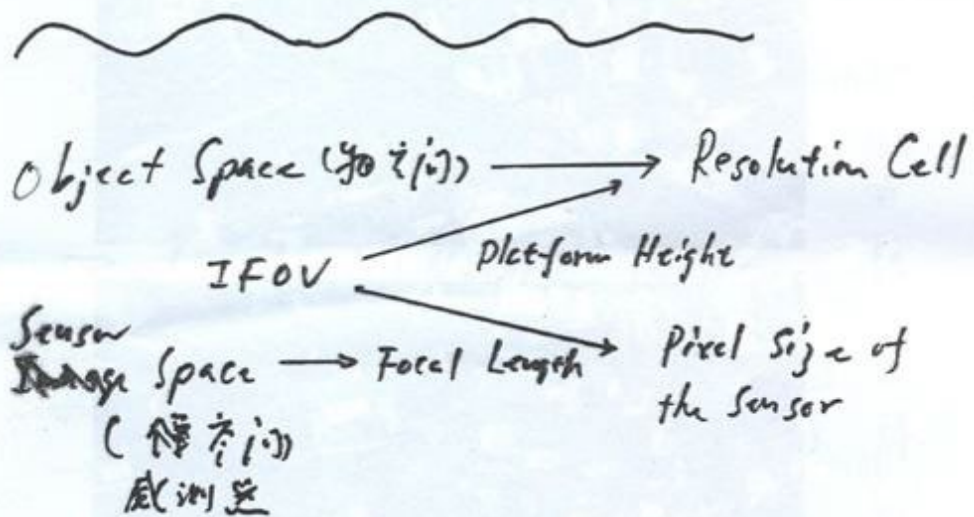 Object Space (物空间) → Resolution Cell
IFOV
Platform Height
Sensor
Space → Focal Length
Pixel Size of
the Sensor
(像空间)
感测器